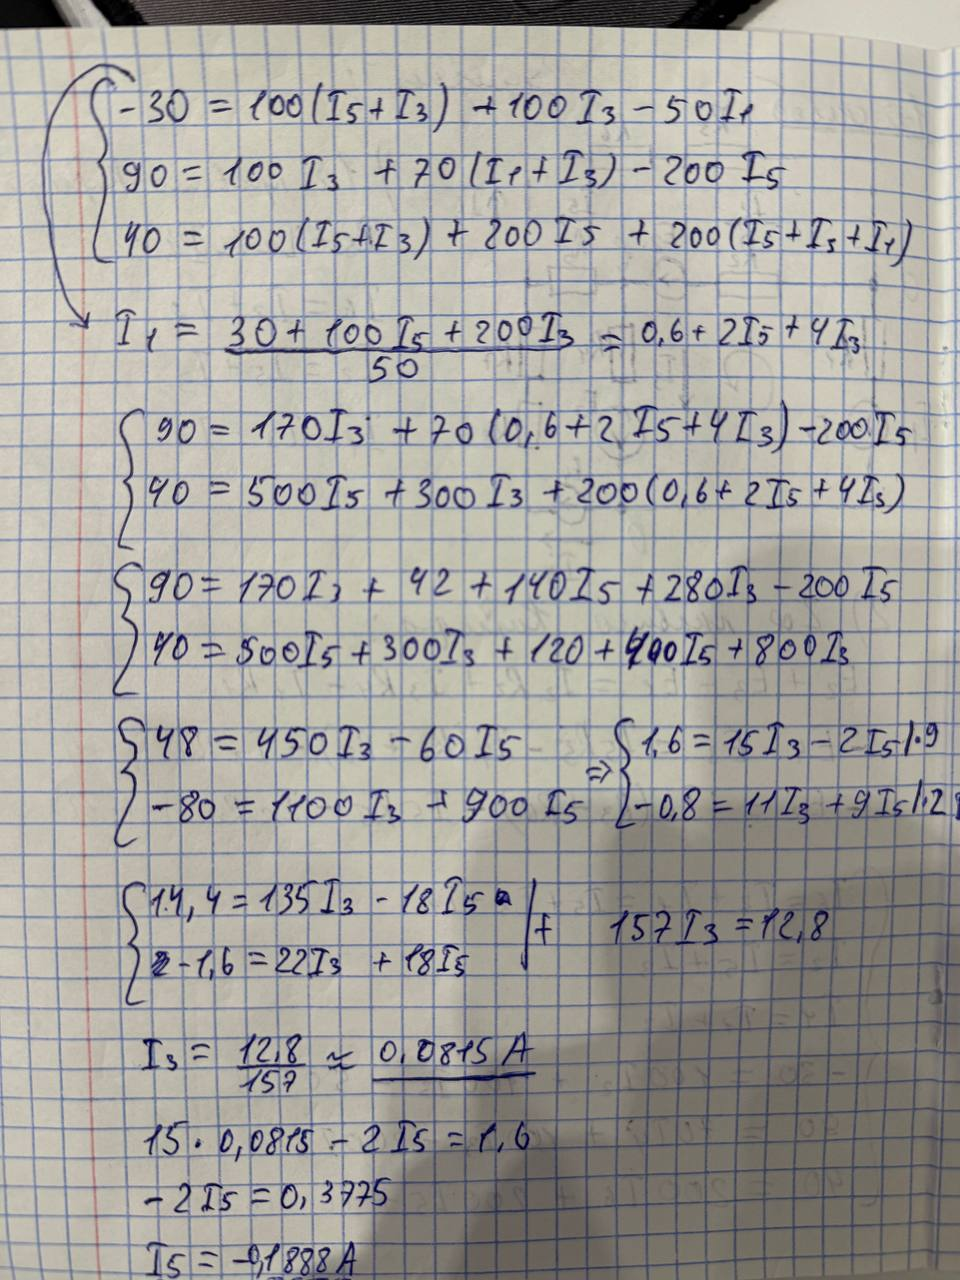 -30 = 100(I5+I3) + 100 I3 - 50I1
90 = 100 I3 + 70(I1+I3) - 200 I5
40 = 100(I5+I3) + 200 I5 + 200(I5+I3+I1)
I1 = (30 + 100I5 + 200I3)/50 = 0,6 + 2I5 + 4I3
90 = 170I3 + 70(0,6+2I5+4I3) - 200I5
40 = 500I5 + 300I3 + 200(0,6+2I5+4I3)
90 = 170I3 + 42 + 140I5 + 280I3 - 200I5
40 = 500I5 + 300I3 + 120 + 400I5 + 800I3
48 = 450I3 - 60I5 => 1,6 = 15I3 - 2I5 |·9
-80 = 1100I3 + 900 I5 -0,8 = 11I3 + 9I5 |·2
14,4 = 135I3 - 18I5
-1,6 = 22I3 + 18I5 | + 157I3 = 12,8
I3 = 12,8/157 ≈ 0,0815 A
15 · 0,0815 - 2I5 = 1,6
-2I5 = 0,3775
I5 = -0,1888 A